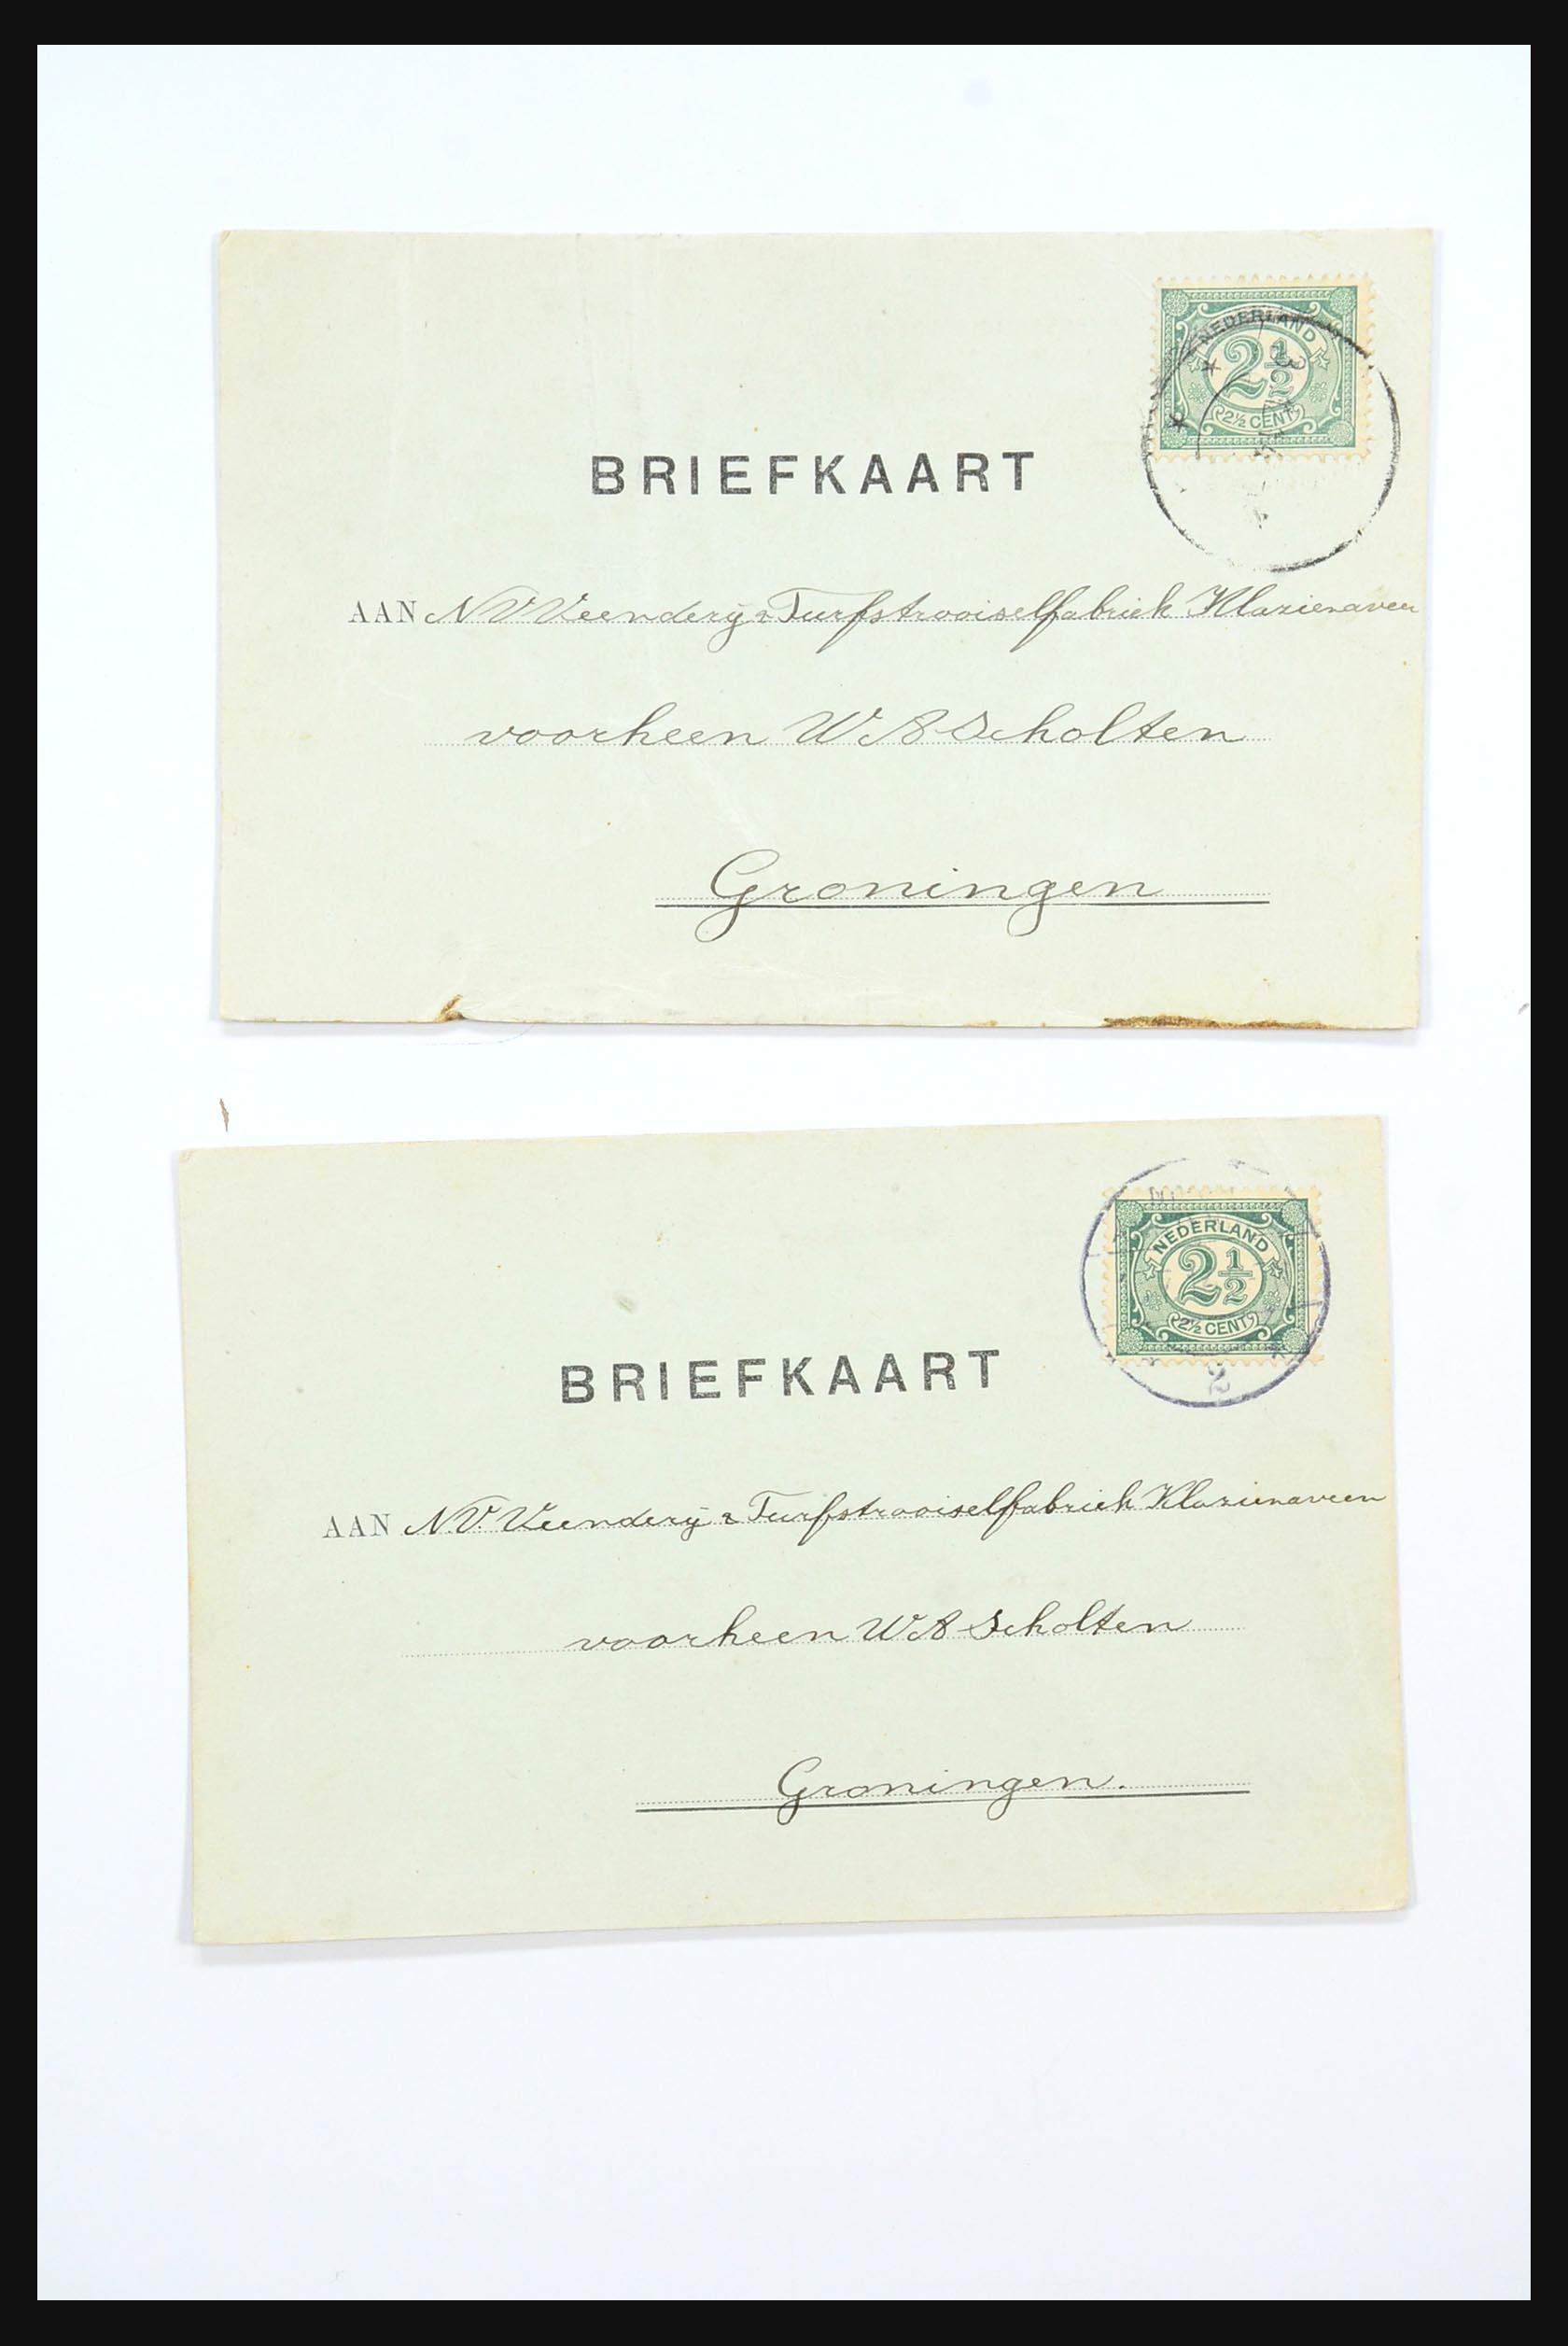 NEDERLAND
2½
2½ CENT
BRIEFKAART
AAN N V Veenderij & Turfstrooiselfabriek Klazienaveen
voorheen W A Scholten
Groningen
NEDERLAND
2½
2½ CENT
2
BRIEFKAART
AAN N.V. Veenderij & Turfstrooiselfabriek Klazienaveen
voorheen W A Scholten
Groningen.